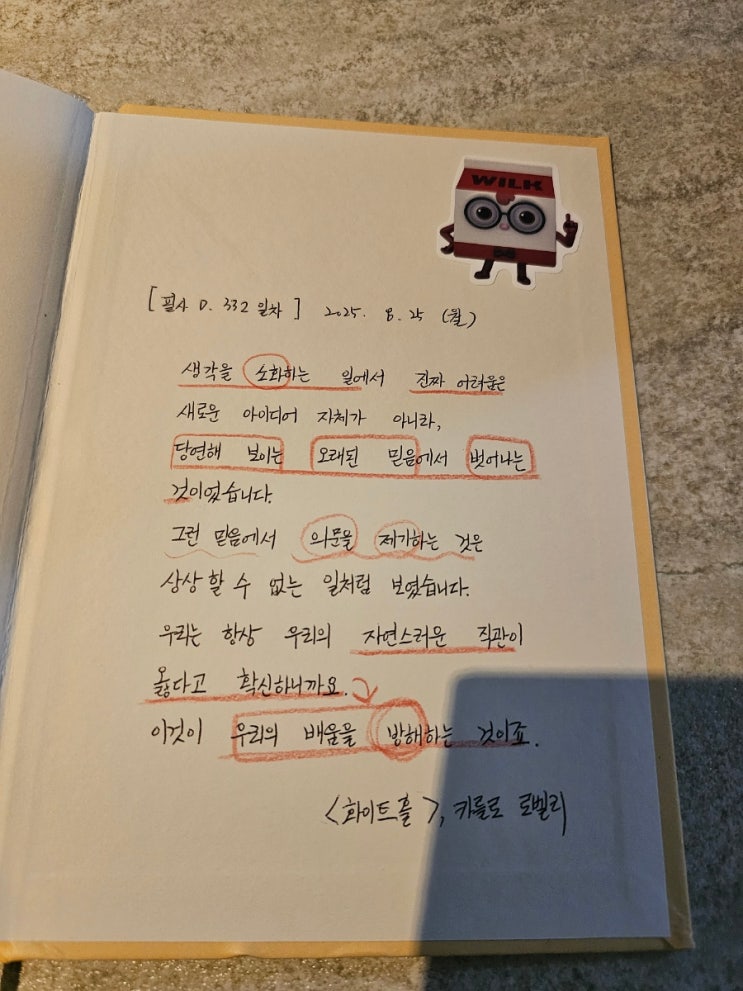 WILK
[필사 D. 332일차] 2025. 8. 25 (월)
생각을 소화하는 일에서 진짜 어려움은
새로운 아이디어 자체가 아니라,
당연해 보이는 오래된 믿음에서 벗어나는
것이었습니다.
그런 믿음에서 의문을 제기하는 것은
상상할 수 없는 일처럼 보였습니다.
우리는 항상 우리의 자연스러운 직관이
옳다고 확신하니까요.
이것이 우리의 배움을 방해하는 것이죠.
<화이트홀>, 카를로 로벨리